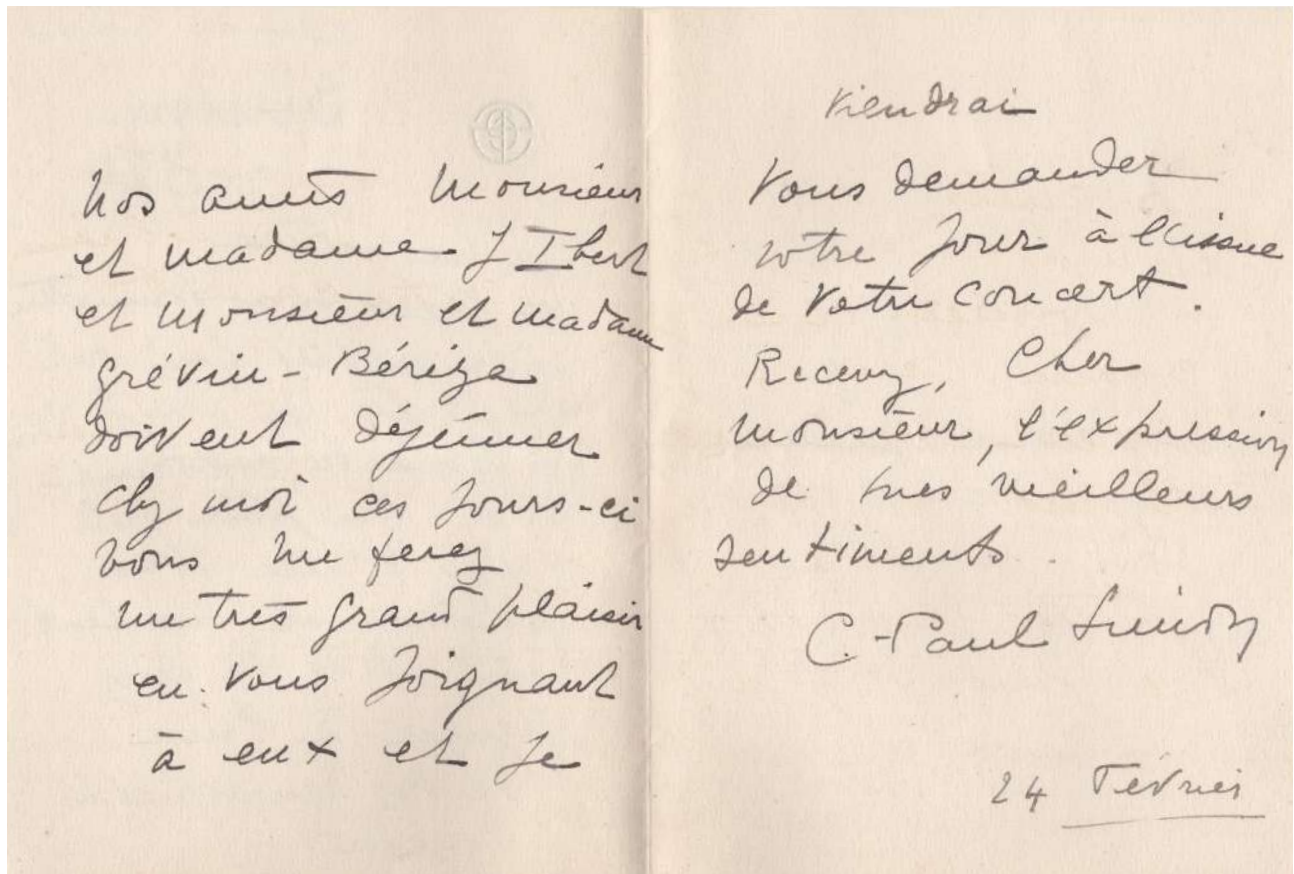 nos amis Monsieur
et madame J Ibert
et monsieur et madame
grévin - Bériza
doivent déjeuner
chez moi ces jours-ci
vous me ferez
un très grand plaisir
en vous joignant
à eux et je
viendrai
vous demander
votre jour à l'issue
de votre concert.
Recevez, Cher
monsieur, l'expression
de mes meilleurs
sentiments.
C. - Paul
24 Février